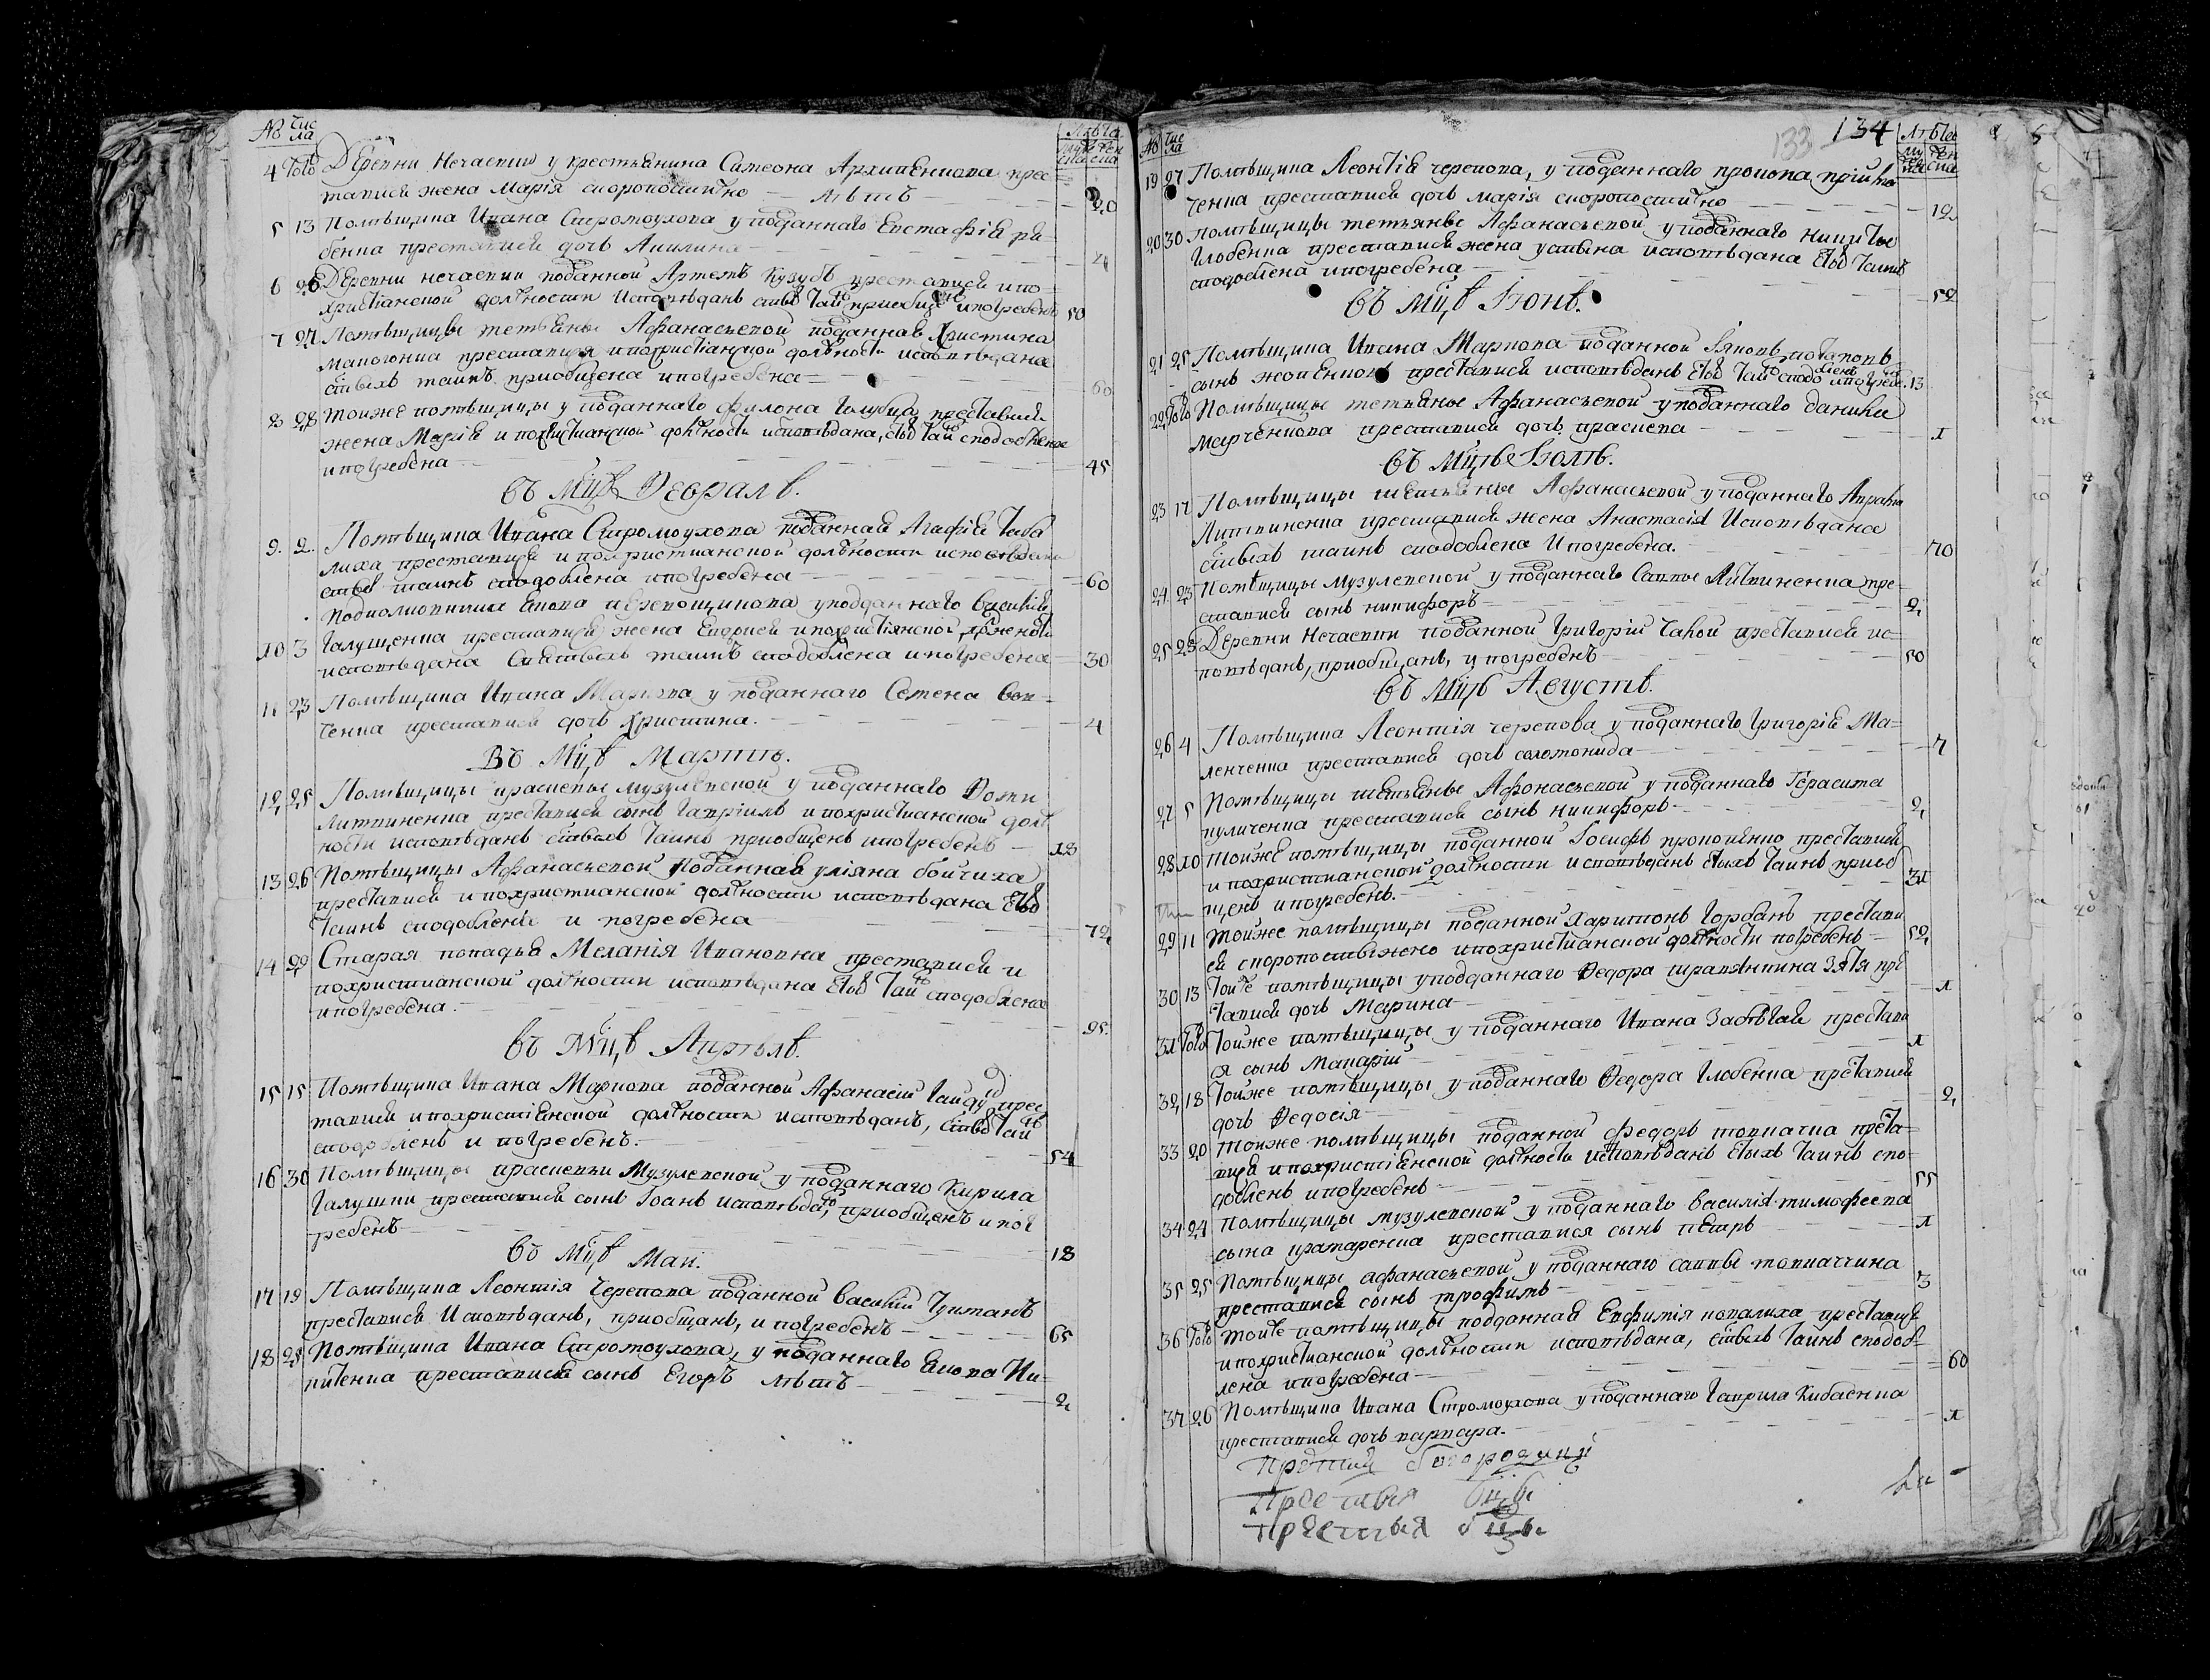 № Чис ла Лѣта
4 Того Деревни Нечаевки у крестьянина Симеона Архипенкова прес
тавися жена Марія скоропостижно — лѣтъ — 20
5 13 Помѣщика Ивана Стромоухова у подданнаго Евстафія ря
бенка преставися дочь Акилина — 4
6 26 Деревни нечаевки подданной Артемъ Кузубъ преставися и по
христіанской должности исповѣданъ приобщенъ и погребенъ 50
7 27 Помѣщицы тетьяны Афанасьевой подданная Христина
преставися и по христіанской должности исповѣдана
святыхъ таинъ приобщена и погребена — 60
8 28 тойже помѣщицы у подданнаго филона Голубца преставися
жена Марія и по христианской должности исповѣдана, стых таинъ сподоблена
и погребена — 45
въ мцѣ Февралѣ.
9. 2. Помѣщика Ивана Стромоухова подданная Агафія
преставися и по христианской должности исповѣдана
стых таинъ сподоблена и погребена — 60
Подполковника Якова Черепощикова у подданнаго Василія
10 3 Галущенка преставися жена и по христіянской должности
исповѣдана святыхъ таинъ сподоблена и погребена — 30
11 23 Помѣщика Ивана Маркова у подданнаго Семена
ченка преставися дочь Христина. — 4
Въ Мцѣ Мартѣ.
12 25 Помѣщицы прасковьи музулевской у подданнаго
Литвиненка преставися сынъ Гавріилъ и по христианской долж
ности исповѣданъ святыхъ таинъ приобщенъ и погребенъ — 18
13 26 Помѣщицы Афанасьевой подданная уліяна бойчиха
преставися и по христианской должности исповѣдана стых
таинъ сподоблена и погребена — 72
14 29 Старая попадья Меланія Ивановна преставися и
по христианской должности исповѣдана стых таинъ сподоблена
и погребена — 95
въ Мцѣ Апрѣлѣ.
15 15 Помѣщика Ивана Маркова подданной Афанасій Гайду прес
тавися и по христіянской должности исповѣданъ, стых таинъ
сподобленъ и погребенъ. — 54
16 30 Помѣщицы прасковьи Музулевской у подданнаго Кирила
Галушки преставися сынъ Іоанъ исповѣданъ, приобщенъ и пог
ребенъ — 18
въ мцѣ Маи.
17 19 Помѣщика Леонтія Черепова подданной Василій Чуманъ
преставися исповѣданъ, приобщанъ, и погребенъ — 65
18 25 Помѣщика Ивана Стромоухова, у подданнаго Якова
преставися сынъ Егоръ лѣтъ — 2
133 134
№ Чис ла Лѣта
19 27 Помѣщика Леонтія черепова, у подданнаго прокопа
ченка преставися дочь марія скоропостижно — 12
20 30 Помѣщицы тетьяны Афанасьевой у подданнаго никиты
Глобенка преставися жена устина исповѣдана стых таинъ
сподоблена и погребена — 52
въ мцѣ Іюнѣ.
21 25 Помѣщика Ивана Маркова подданной Іяковъ потаповъ
сынъ преставися исповѣданъ стых таинъ сподобленъ и погребенъ 13
22 Того Помѣщицы тетьяны Афанасьевой у подданнаго данила
марченкова преставися дочь прасковя — 1
въ мцѣ Іюлѣ.
23 17 Помѣщицы тетьяны Афанасьевой у подданнаго
Литвиненка преставися жена Анастасія исповѣдана
святыхъ таинъ сподоблена и погребена. — 70
24 23 Помѣщицы музулевской у подданнаго Саввы Литвиненка пре
ставися сынъ никифоръ — 2
25 28 Деревни Нечаевки подданной Григорій Чалой преставися ис
повѣданъ, приобщанъ, и погребенъ — 50
въ мцѣ Августѣ.
26 4 Помѣщика Леонтія черепова у подданнаго Григорія Ма
ленченка преставися дочь соломонида — 7
27 5 Помѣщицы тетьяны Афонасьевой у подданнаго Герасима
куличенка преставися сынъ никифоръ — 2
28 10 тойже помѣщицы подданной Іосифъ прокопенко преставися
и по христианской должности исповѣданъ стыхъ таинъ приоб
щенъ и погребенъ. — 31
29 11 тойже помѣщицы подданной Харитонъ Горбань престави
ся скоропостыжно и по христианской должности погребенъ — 52
30 13 Тойже помѣщицы у подданнаго Федора зятя прес
тавися дочь Марина — 1
31 Того Тойже помѣщицы у подданнаго Ивана престави
ся сынъ Макарій — 1
32 18 Тойже помѣщицы у подданнаго Федора Глобенка преставися
дочь Федосія — 2
33 20 тойже помѣщицы подданной федоръ товкачка преста
вися и по христіянской должности исповѣданъ стыхъ таинъ спо
добленъ и погребенъ — 55
34 24 помѣщицы музулевской у подданнаго Василія тимофеева
сына преставися сынъ петръ — 1
35 25 Помѣщицы афанасьевой у подданнаго саввы
преставися сынъ трофимъ — 3
36 Того тойже помѣщицы подданная Евфимія ковалиха преставися
и по христианской должности исповѣдана, святыхъ таинъ сподоб
лена и погребена — 60
37 26 Помѣщика Ивана Стромоухова у подданнаго Гаврила Кибаенка
преставися дочь варвара. — 1
богородицы